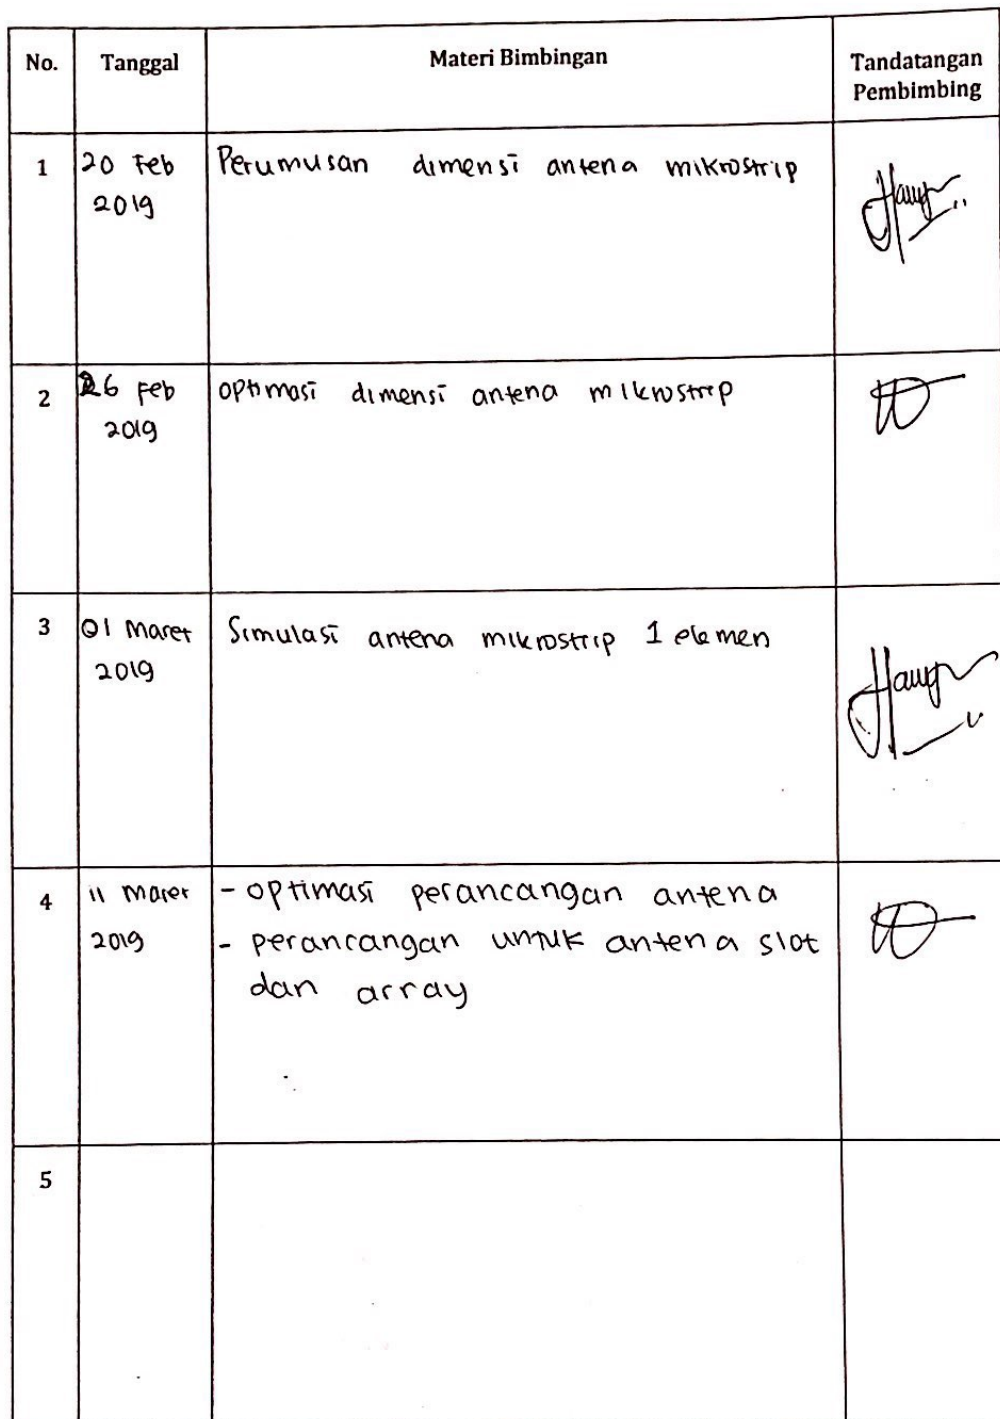 No. Tanggal Materi Bimbingan Tandatangan
Pembimbing
1 20 Feb Perumusan dimensi antena mikrostrip
2019
2 26 Feb optimasi dimensi antena mikrostrip
2019
3 01 Maret Simulasi antena mikrostrip 1 elemen
2019
4 11 Maret - optimasi perancangan antena
2019 - perancangan untuk antena slot
dan array
5